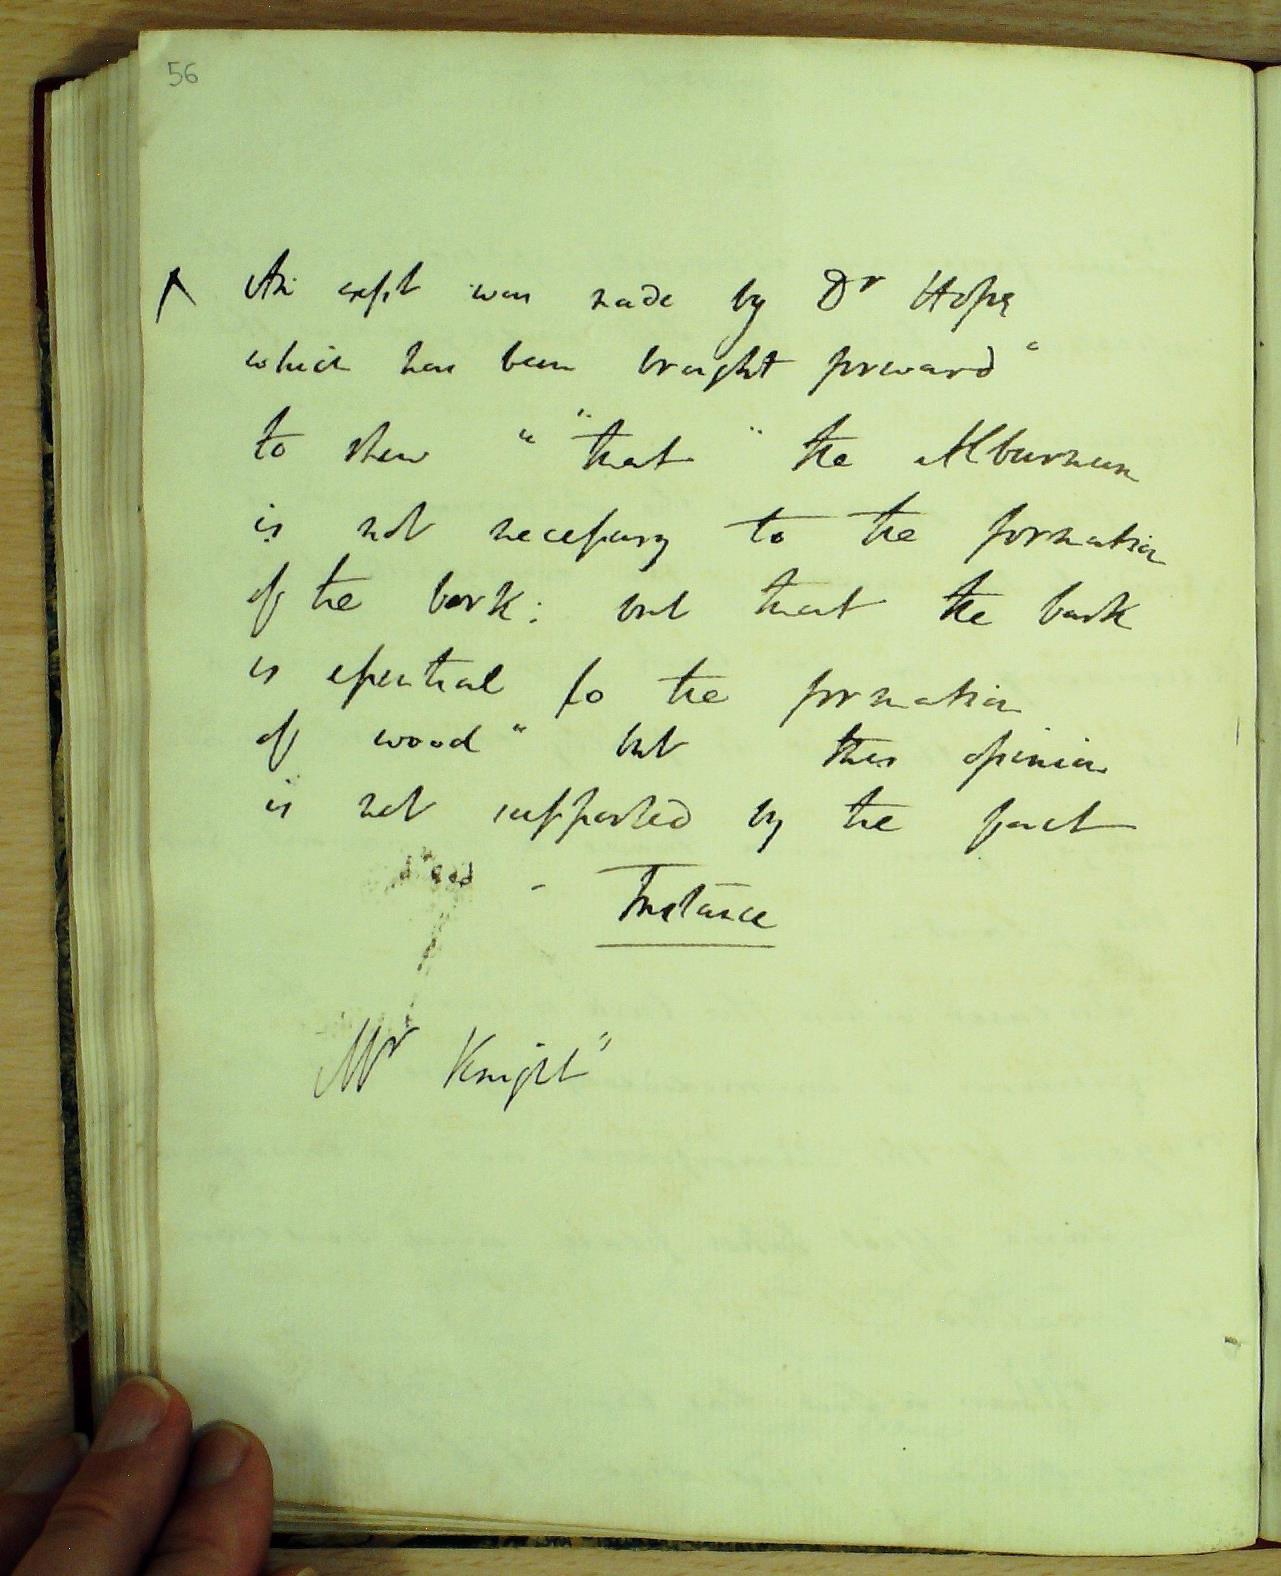 56
An expt was made by Dr Hope
which has been brought forward "
to shew " "that" the Alburnum
is not necessary to the formation
of the bark: but that the bark
is essential to the formation
of wood" but this opinion
is not supported by the fact
- Instance
Mr Knight"